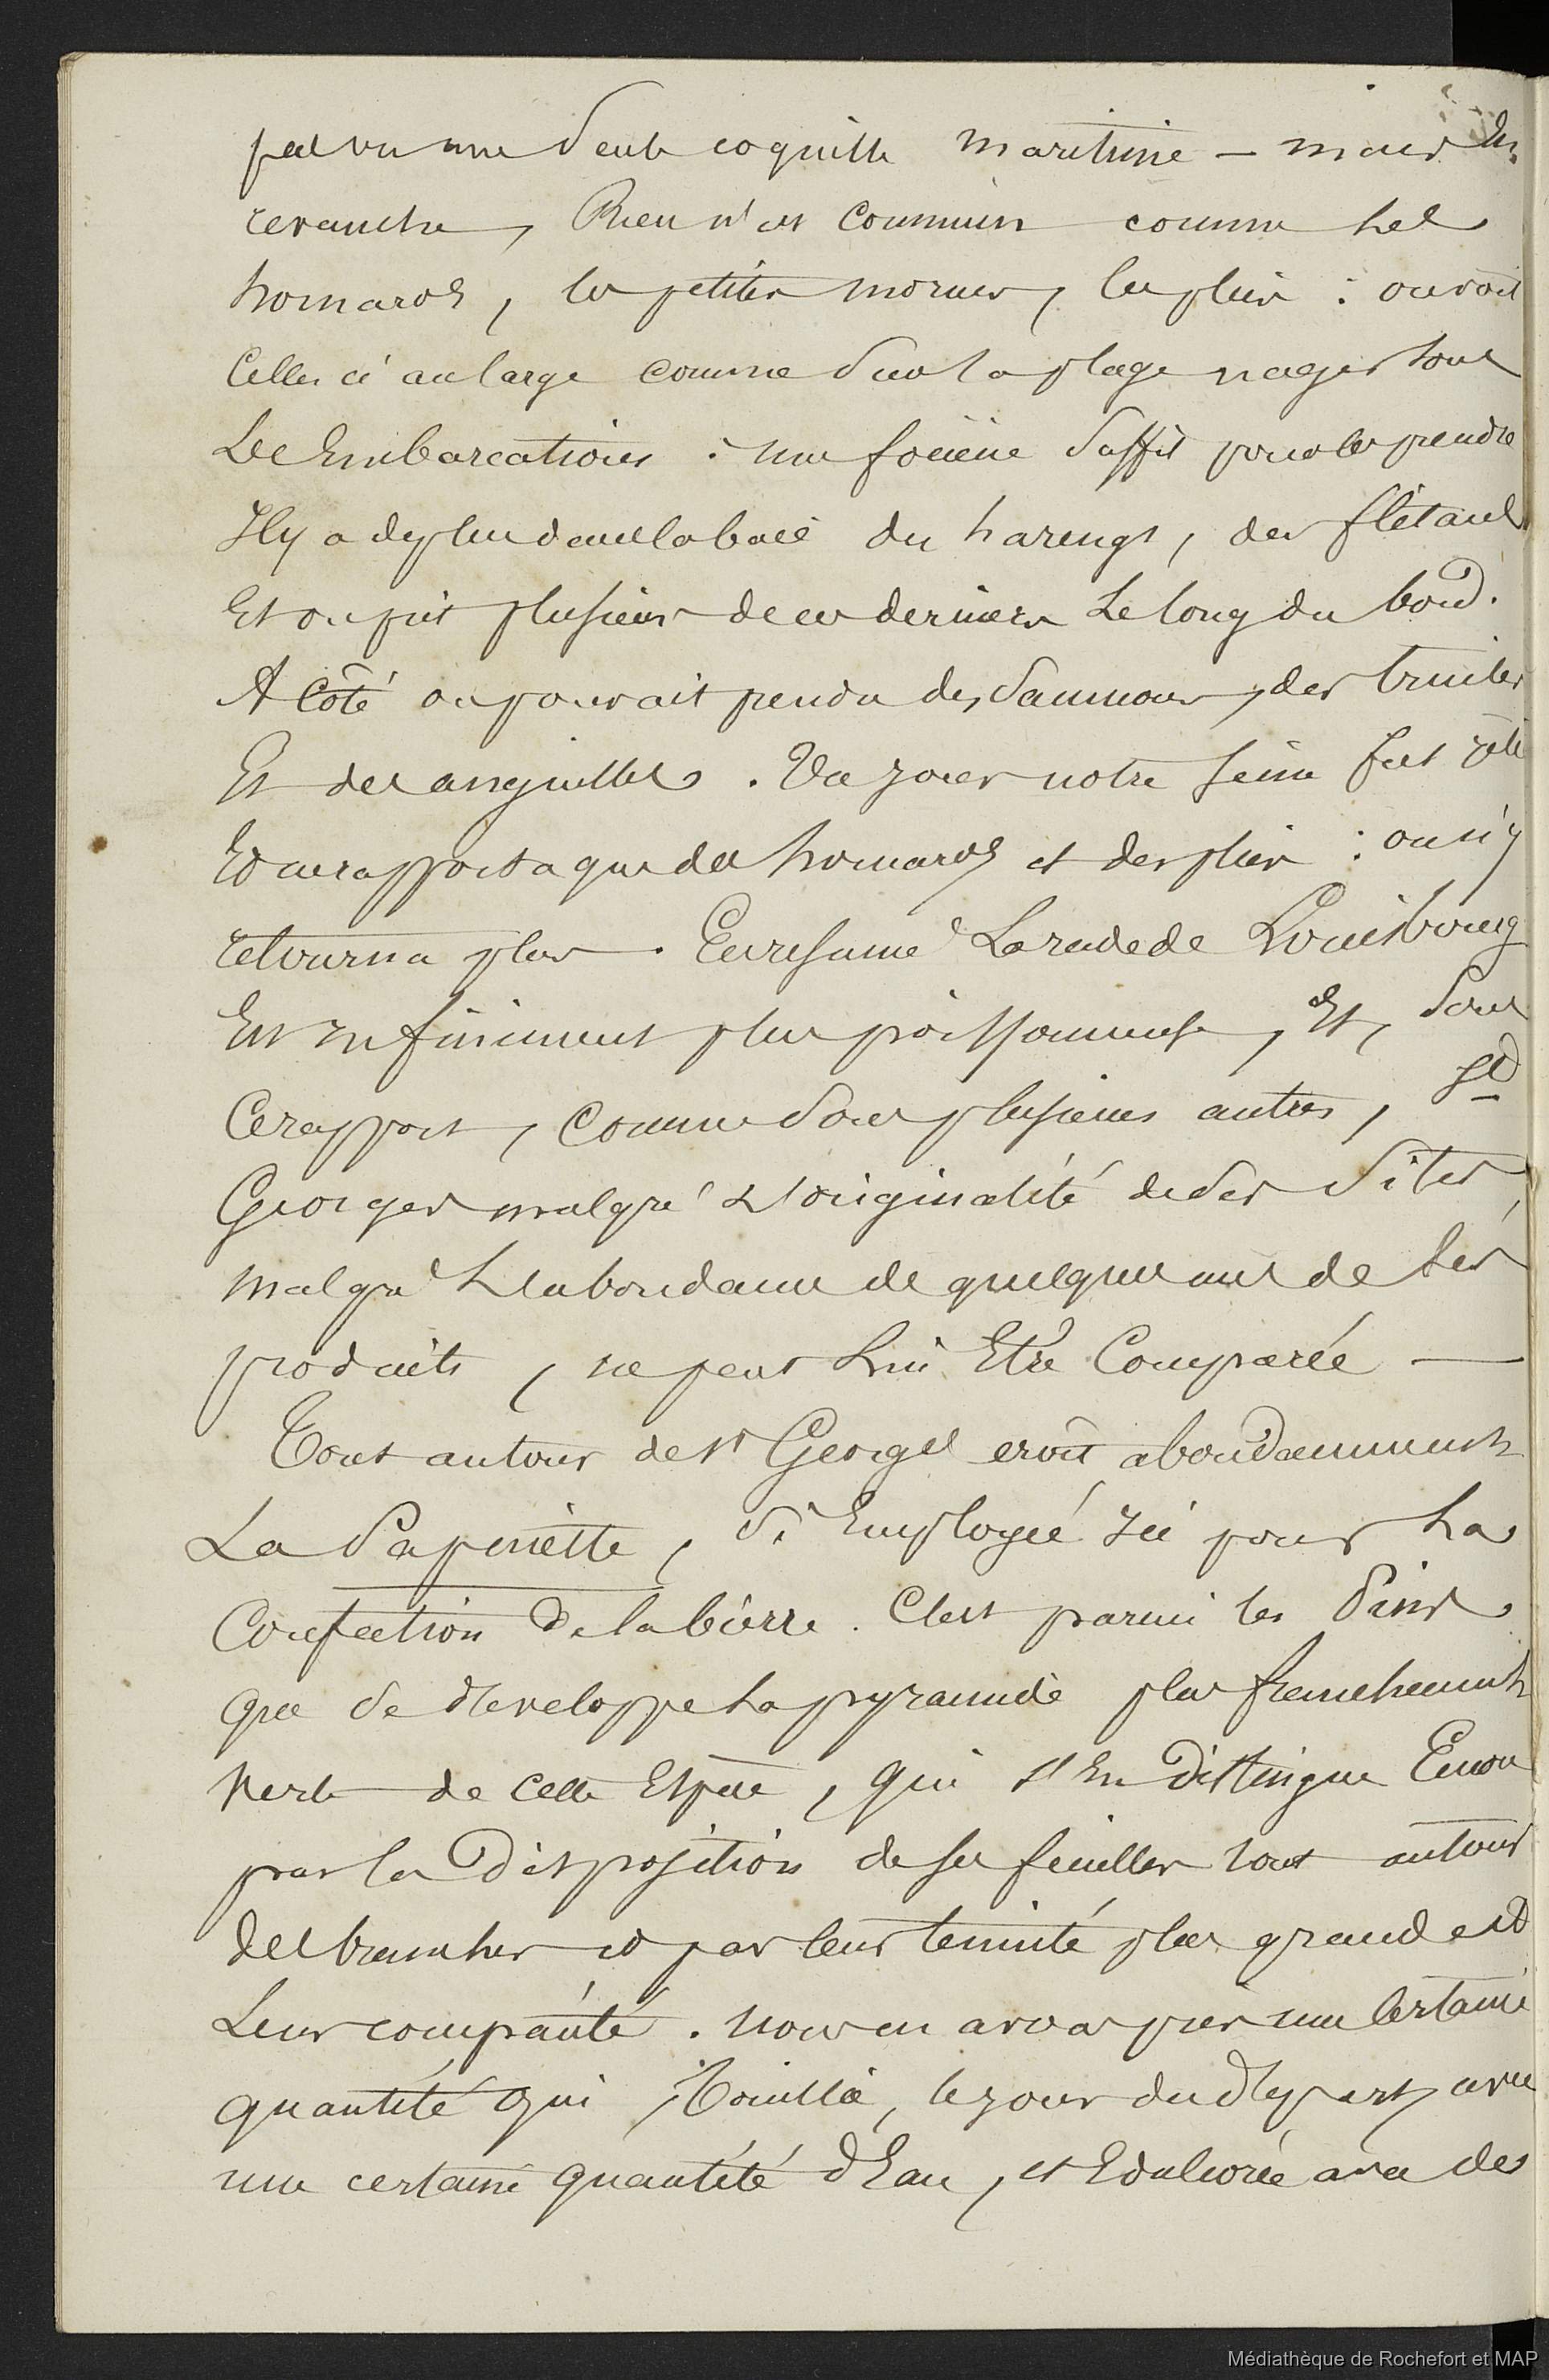 pas vu une seule coquille maritime – mais en
revanche, Rien n'est Commun comme les
homards, les petites morues, les plies : on voit
Celles ci au large comme sur la plage nager sous
Les Embarcations : une foëne suffit pour les prendre
Il y a de plus dans la baie du harengs, des flétans
Et on prit plusieurs de ces derniers Le long du bord.
A Côté on pouvait prendre des Saumons, des truites
Et des anguilles. Un jour notre seine fut
Et ne rapporta que des homards et des plies : on n'y
retourna plus. En resumé La rade de Louisbourg
Est infiniment plus poissonneuse, Et, sous
Ce rapport, Comme sous plusieurs autres, St
Georges malgré L'originalité de ses Sites,
malgré L'abondance de quelques uns de Ses
produits, ne peut Lui Etre Comparée —
Tout autour de St Georges croît abondamment
La Sapinette, si Employée Ici pour La
Confection De la bierre. C'est parmi les Pins
que se développe La pyramide plus franchement
verte de cette Espèce, qui s'En Distingue Encore
par la Disposition de ses feuilles tout autour
des branches et par leur tenuité plus grande et
Leur compacité. Nous en avons pris une Certaine
quantité qui bouillie, le jour du départ, avec
une certaine quantité d'Eau, et Edulcorée avec des
Médiathèque de Rochefort et MAP